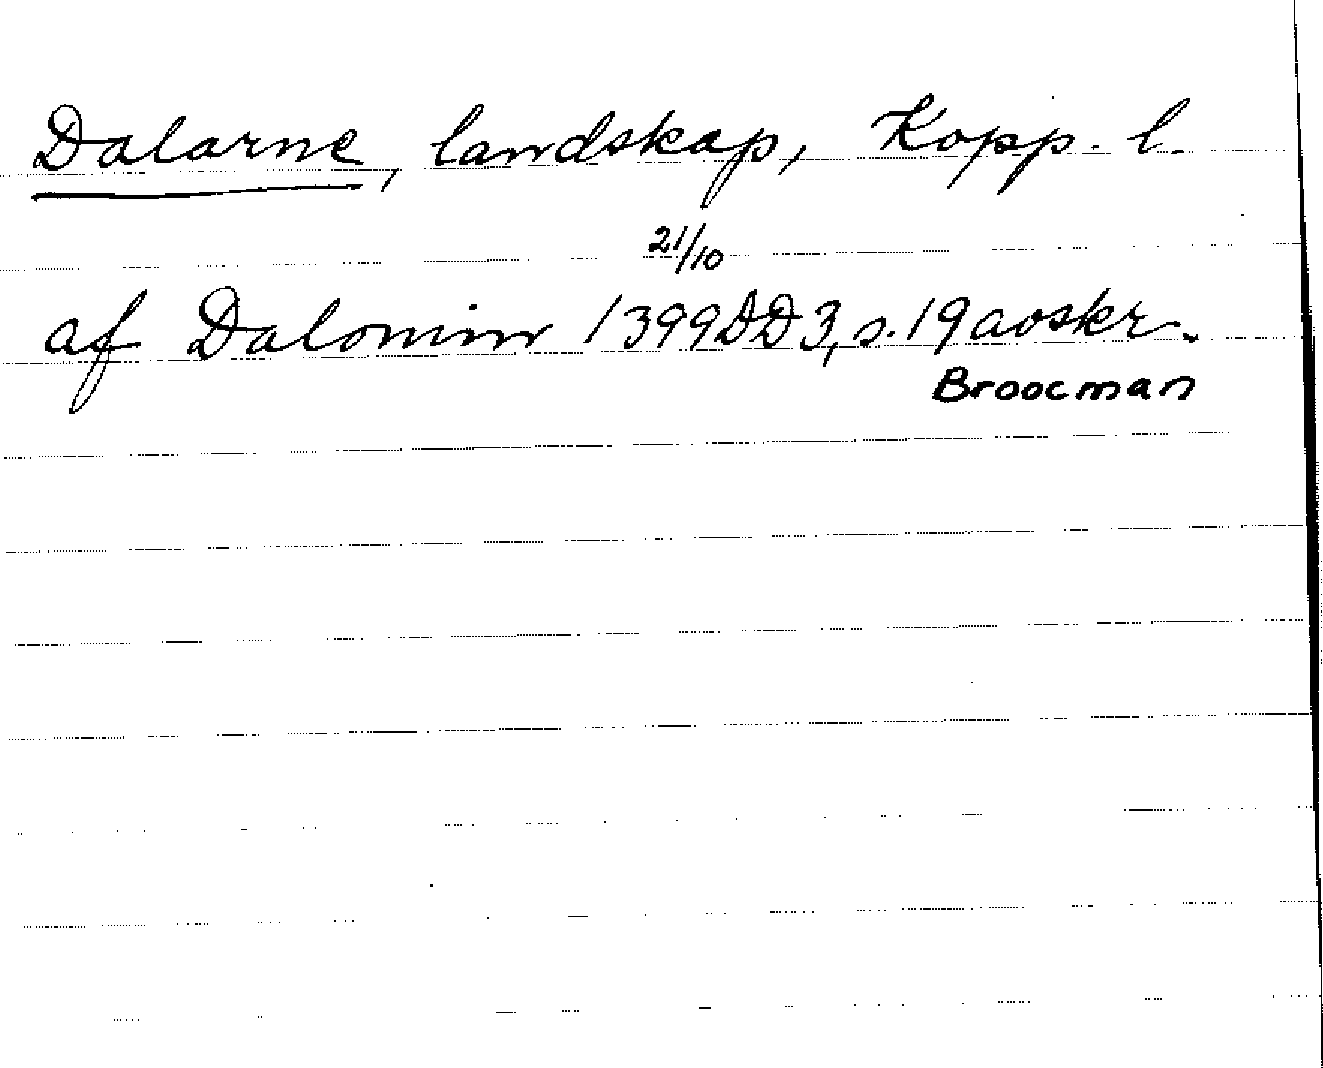 Dalarne, landskap, Kopp. l.
21/10
af Dalomim 1399 DD3, s. 19 avskr.
Broocman